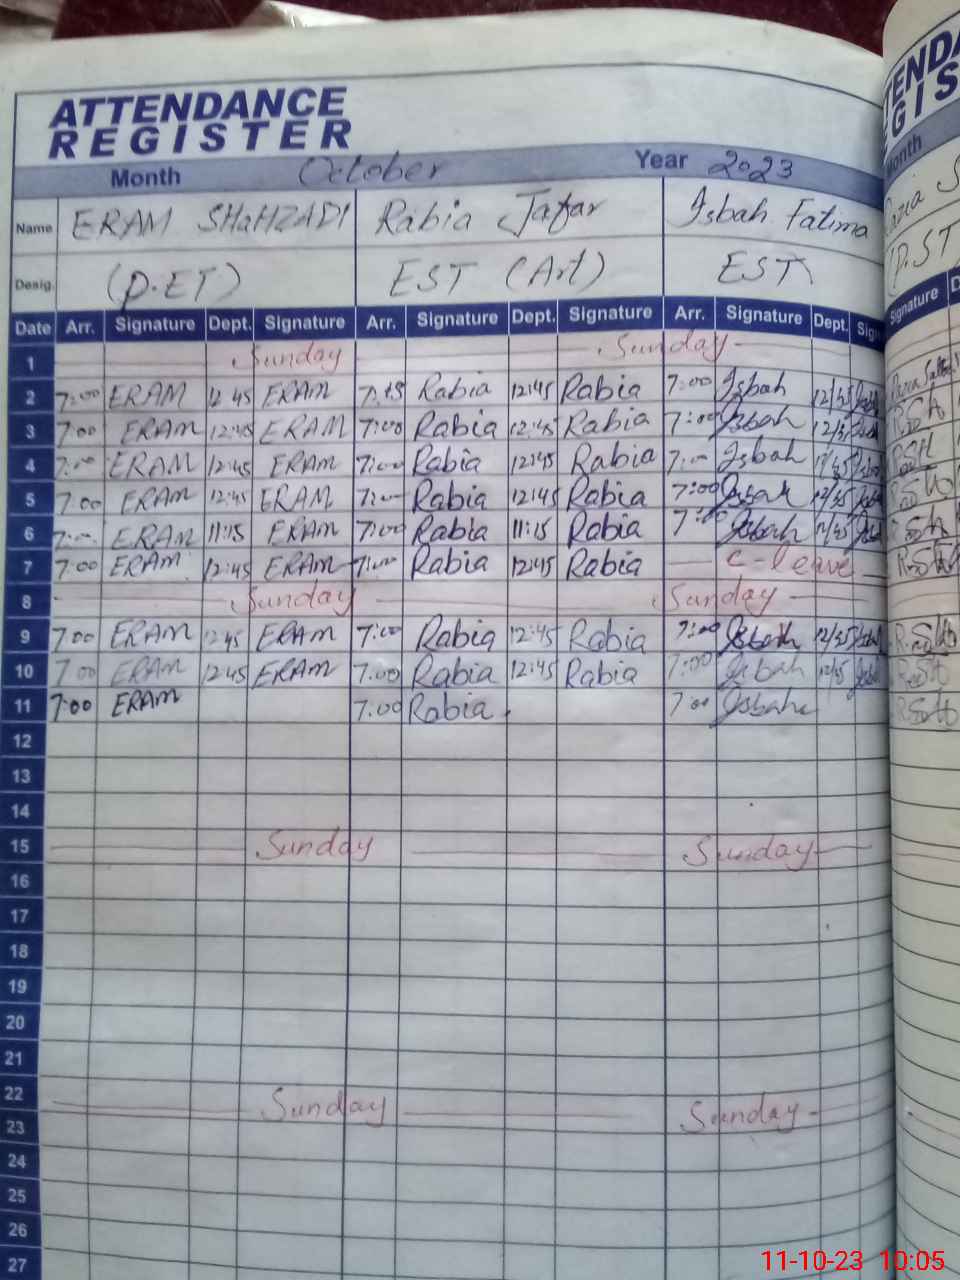 ATTENDANCE
REGISTER
Month October Year 2023
Name ERAM SHaHZADI Rabia Jafar Isbah Fatima
Desig. (P.ET) EST (Art) EST
Date Arr. Signature Dept. Signature Arr. Signature Dept. Signature Arr. Signature Dept.
1 Sunday Sunday
2 7:00 ERAM 12:45 ERAM Rabia 12:45 Rabia 7:00 Isbah
3 7:00 ERAM 12:45 ERAM 7:00 Rabia 12:45 Rabia 7:00 Isbah
4 ERAM 12:45 ERAM 7:00 Rabia 12:45 Rabia Isbah
5 7:00 ERAM 12:45 ERAM Rabia 12:45 Rabia 7:00 Isbah
6 ERAM 11:15 ERAM 7:00 Rabia 11:15 Rabia Isbah
7 7:00 ERAM 12:45 ERAM Rabia 12:45 Rabia C-leave
8 Sunday Sunday
9 7:00 ERAM 12:45 ERAM 7:00 Rabia 12:45 Rabia 7:00 Isbah
10 7:00 ERAM 12:45 ERAM 7:00 Rabia 12:45 Rabia 7:00 Isbah
11 7:00 ERAM 7:00 Rabia. 7:00 Isbah
12
13
14
15 Sunday Sunday
16
17
18
19
20
21
22 Sunday Sunday
23
24
25
26
27
Month
Signature
11-10-23 10:05